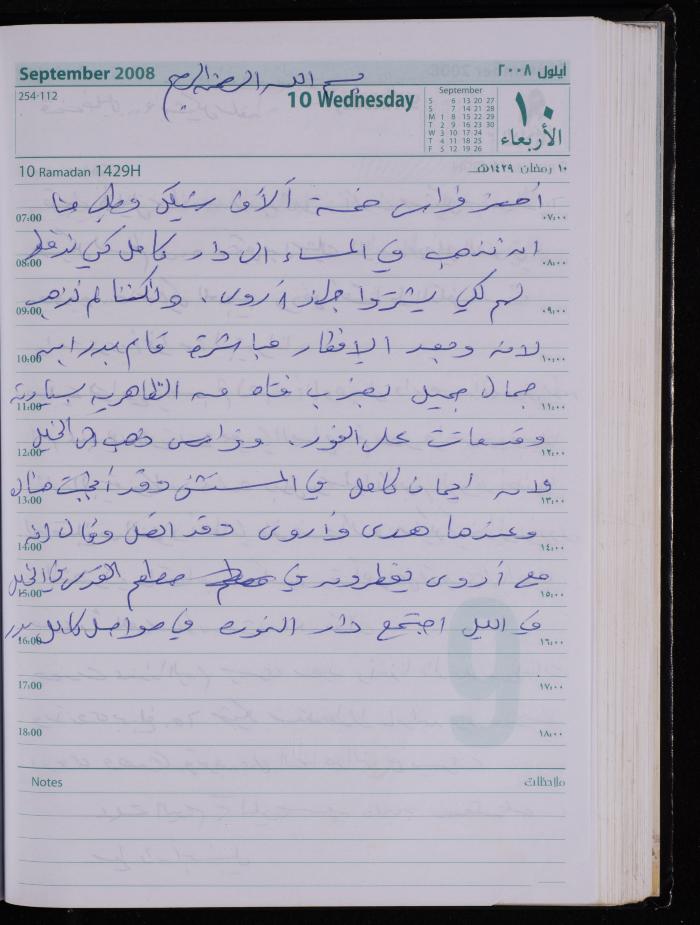 September 2008
بسم الله الرحمن الرحيم
أيلول ٢٠٠٨
254-112
10 Wednesday
September
S 6 13 20 27
S 7 14 21 28
M 1 8 15 22 29
T 2 9 16 23 30
W 3 10 17 24
T 4 11 18 25
F 5 12 19 26
١٠
الأربعاء
10 Ramadan 1429H
١٠ رمضان ١٤٢٩هـ
فراس خمسة آلاف شيكل وطلب منا
07:00 ٠٧:٠٠
ان نذهب في المساء الى دار كامل كي
08:00 ٠٨:٠٠
لهم لكي يشتروا جهاز أروى. ولكننا لم نذهب
09:00 ٠٩:٠٠
لانه وبعد الافطار مباشرة قام بدر ابن
10:00 ١٠:٠٠
جمال جميل بضرب فتاه من الظاهرية بسيارته
11:00 ١١:٠٠
وقد ماتت على الفور. وفراس ذهب الى الخليل
12:00 ١٢:٠٠
لانه ايمان كامل في المستشفى وقد أنجبت
13:00 ١٣:٠٠
وعندها هدى وأروى وقد اتصل وقال انه
14:00 ١٤:٠٠
مع أروى يفطرون في مطعم القدس في الخليل
15:00 ١٥:٠٠
في الليل اجتمع دار في
16:00 ١٦:٠٠
17:00 ١٧:٠٠
18:00 ١٨:٠٠
9
Notes
ملاحظات